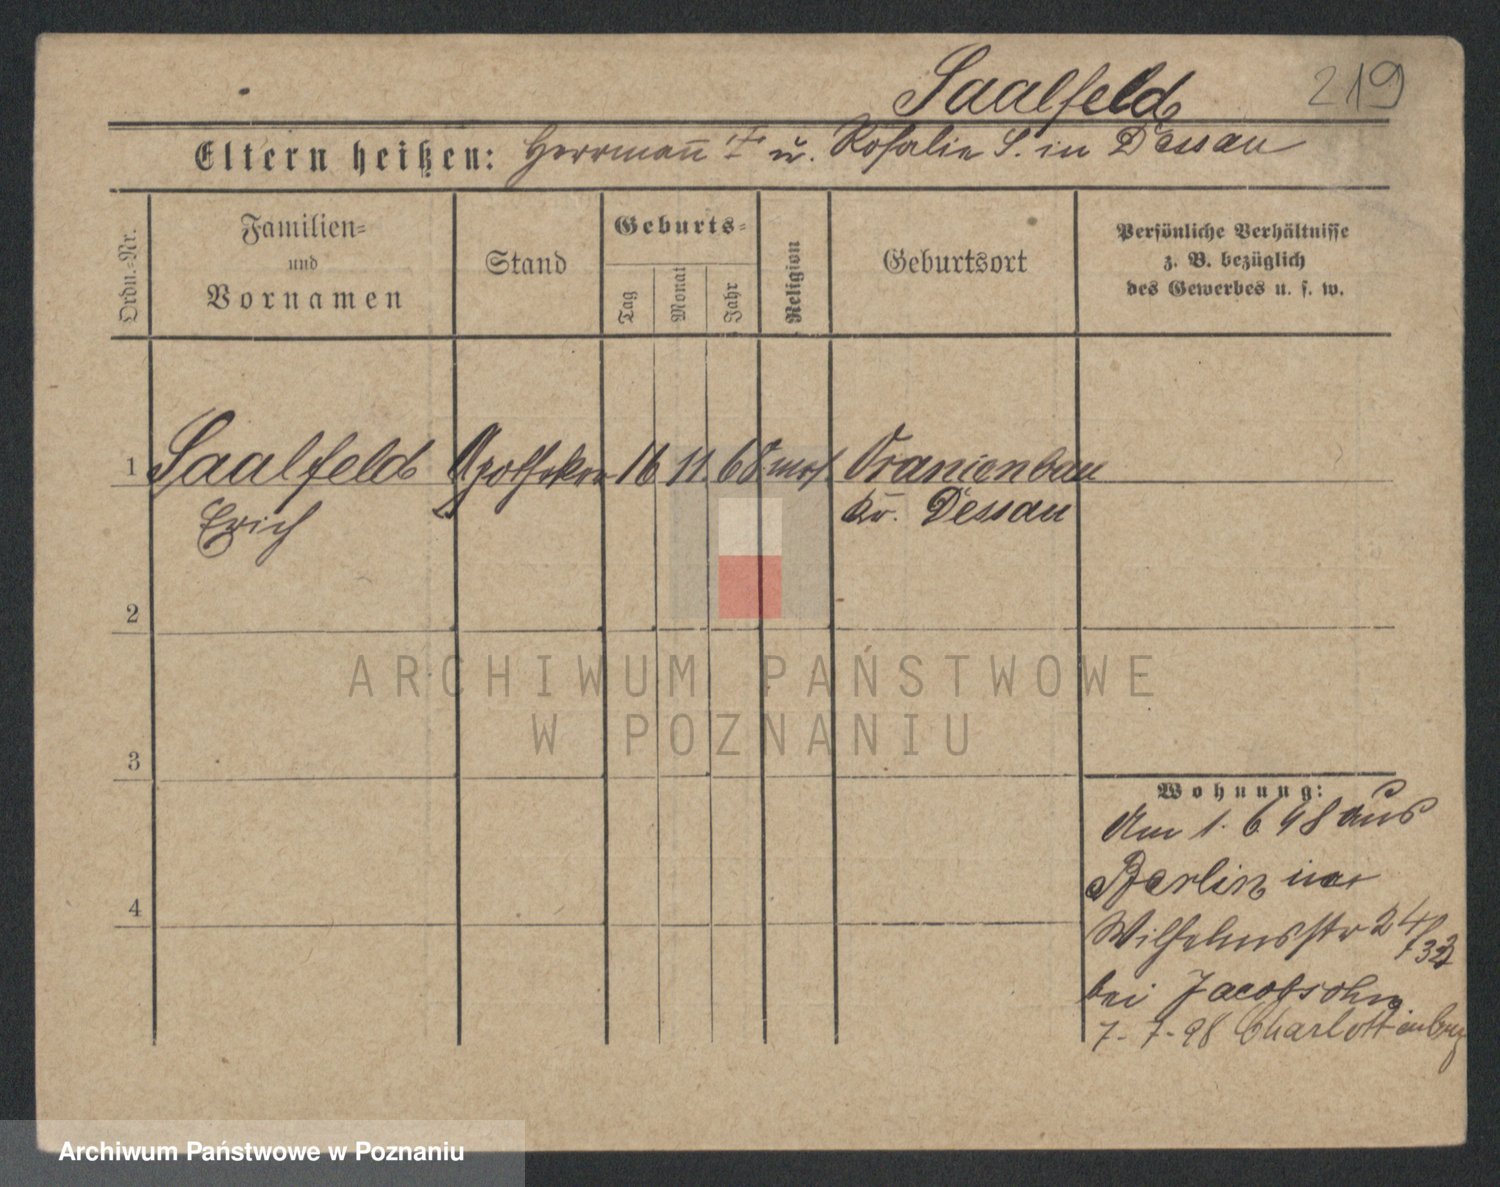 219
Saalfeld
Eltern heißen: Herrmann † u. Rosalie S. in Dessau
Ordn.-Nr.
Familien-
und
Vornamen
Stand
Geburts-
Tag
Monat
Jahr
Religion
Geburtsort
Persönliche Verhältnisse
z. B. bezüglich
des Gewerbes u. s. w.
1 Saalfeld Apotheker 16 11. 68 mos. Oranienbau
Erich Kr. Dessau
2
3
4
Wohnung:
Am 1. 6 98 aus
Berlin
Wilhelmsstr 24
bei Jacobsohn
7-7-98 Charlottenburg
ARCHIWUM PAŃSTWOWE
W POZNANIU
Archiwum Państwowe w Poznaniu